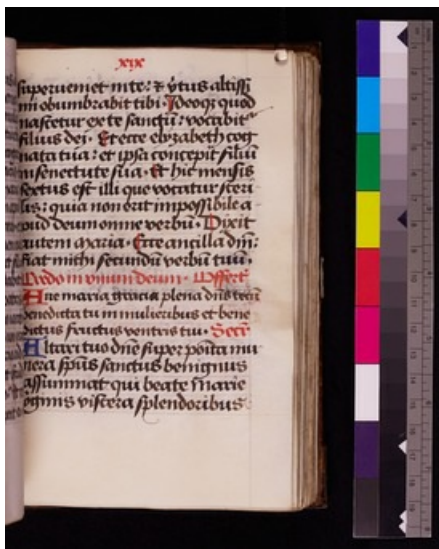 xix
superueniet in te: et v̄tus altissi
mi obumbrabit tibi. Ideoqȝ quod
nascetur ex te sanctū: vocabitʳ
filius dei. Et ecce elyzabeth cog
nata tua: et ipsa concepit filiū
in senectute sua. Et hic mensis
sextus est illi que vocatur steri
lis: quia non erit impossibile a
pud deum omne verbū. Dixit
autem maria. Ecce ancilla dñi:
fiat michi secundū verbū tuū.
Credo in vnum deum. Offert̄
Aue maria gracia plena dñs tecū
benedicta tu in mulieribus et bene
dictus fructus ventris tui. Secr̄
Altari tuo dñe super poīta mu
nera sp̄us sanctus benignus
assummat qui beate marie
viscera splendoribus